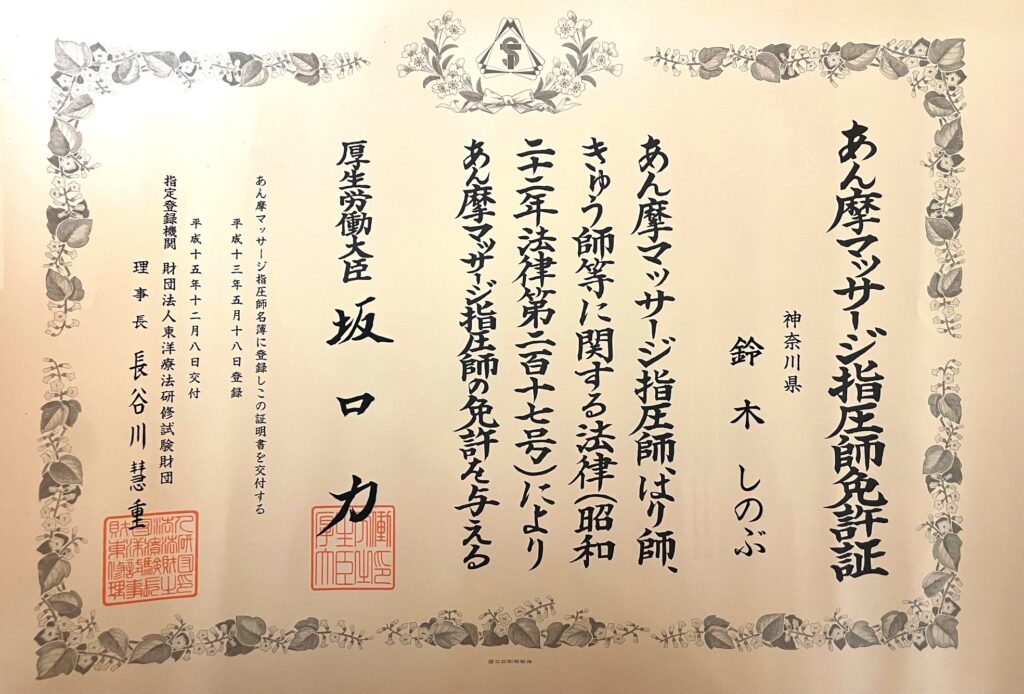 あん摩マッサージ指圧師免許証
神奈川県
鈴木しのぶ
あん摩マッサージ指圧師、はり師、
きゅう師等に関する法律(昭和
二十二年法律第二百十七号)により
あん摩マッサージ指圧師の免許を与える
厚生労働大臣 坂口力
あん摩マッサージ指圧師名簿に登録しこの証明書を交付する
平成十三年五月十八日登録
平成十五年十二月八日交付
指定登録機関 財団法人東洋療法研修試験財団
理事長 長谷川慧重